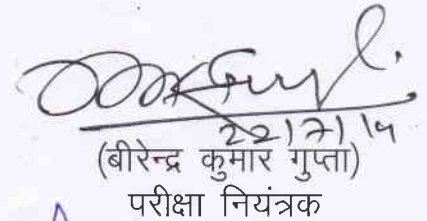 22/7/14
(बीरेन्द्र कुमार गुप्ता)
परीक्षा नियंत्रक